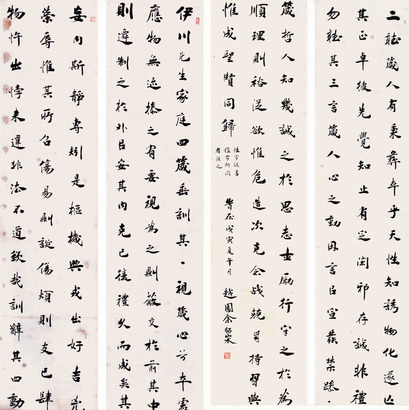 二聽箴人有秉彝本乎天性知誘物化遂亡
其正卓彼先覺知止有定閑邪存誠非禮
勿聽其三言箴人心之動因言以宣發禁躁
箴哲人知幾誠之於思志士勵行守之於為
順理則裕從欲惟危造次克念戰兢自持習與
惟成聖賢同歸
戊寅夏午月 越園余紹宋
伊川先生家庭四箴垂訓其一視箴心兮本虛
應物無迹操之有要視為之則蔽交於前其中
則遷制之於外以安其內克己復禮久而誠矣其
妄內斯靜專矧是樞機興戎出好吉凶
榮辱惟其所召傷易則誕傷煩則支己肆
物忤出悖來違非法不道欽哉訓辭其四動